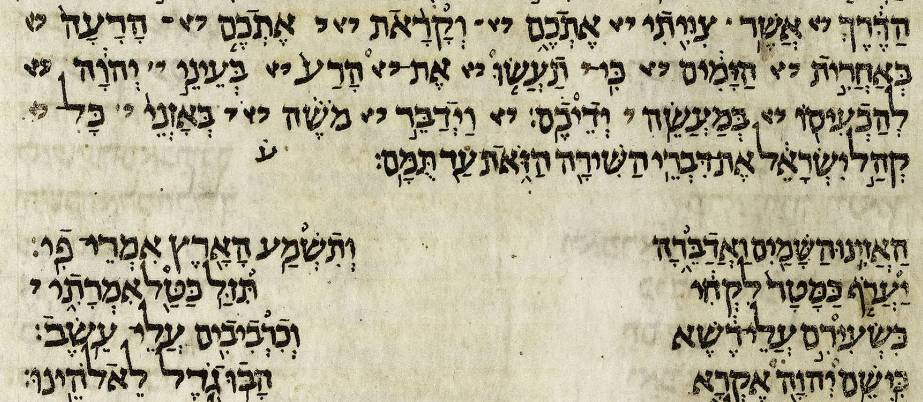 הַדֶּרֶךְ אֲשֶׁר צִוִּיתִי אֶתְכֶם וְקָרָאת אֶתְכֶם הָרָעָה
בְּאַחֲרִית הַיָּמִים כִּי תַעֲשׂוּ אֶת הָרַע בְּעֵינֵי יְהוָה
לְהַכְעִיסוֹ בְּמַעֲשֵׂה יְדֵיכֶם׃ וַיְדַבֵּר מֹשֶׁה בְּאָזְנֵי כָּל
קְהַל יִשְׂרָאֵל אֶת דִּבְרֵי הַשִּׁירָה הַזֹּאת עַד תֻּמָּם׃
הַאֲזִינוּ הַשָּׁמַיִם וַאֲדַבֵּרָה וְתִשְׁמַע הָאָרֶץ אִמְרֵי פִי׃
יַעֲרֹף כַּמָּטָר לִקְחִי תִּזַּל כַּטַּל אִמְרָתִי
כִּשְׂעִירִם עֲלֵי דֶשֶׁא וְכִרְבִיבִים עֲלֵי עֵשֶׂב׃
כִּי שֵׁם יְהוָה אֶקְרָא הָבוּ גֹדֶל לֵאלֹהֵינוּ׃